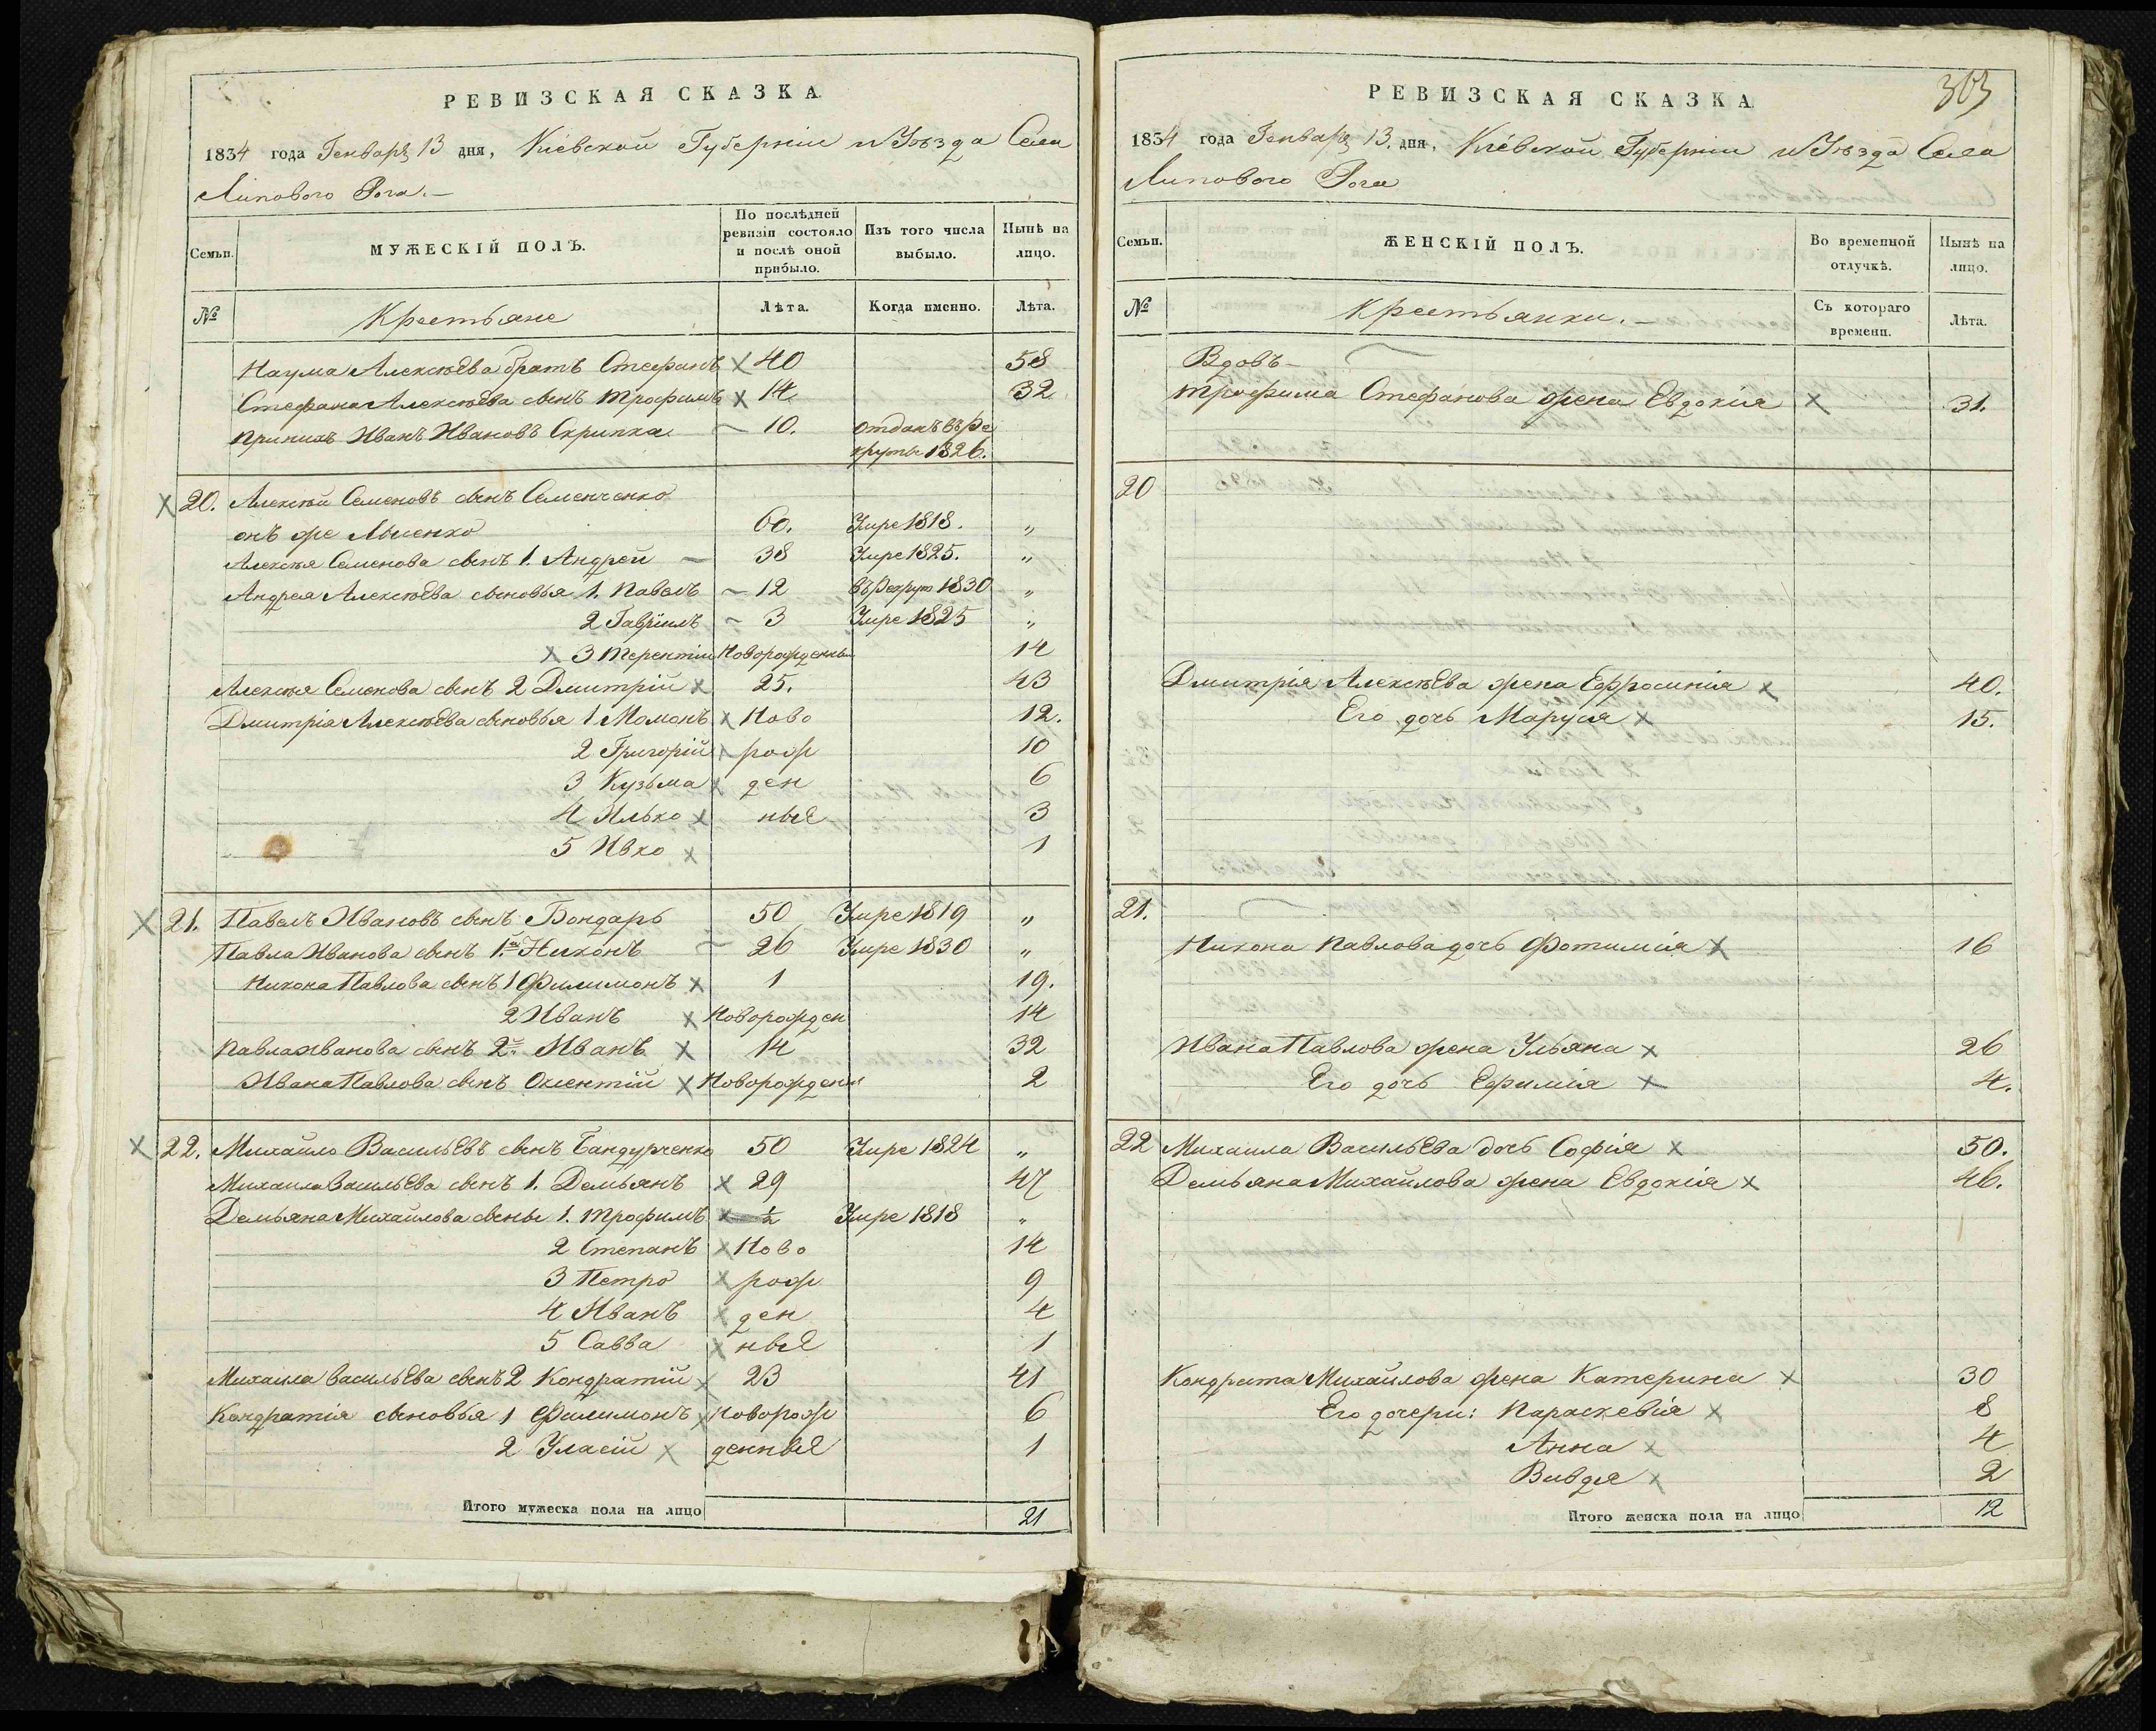 РЕВИЗСКАЯ СКАЗКА
1834 года Генваря 13 дня, Кіевской Губерніи и Уѣзда Села
Липового Рога.—
Семьи.
МУЖЕСКІЙ ПОЛЪ.
По послѣдней ревизіи состояло и послѣ оной прибыло.
Изъ того числа выбыло.
Нынѣ на лицо.
№
Крестьяне
Лѣта.
Когда именно.
Лѣта.
Наума Алексѣева братъ Стефанъ × 40 58
Стефана Алексѣева сынъ Трофимъ × 14 32
Приимъ Иванъ Ивановъ Скрипка — 10. отданъ въ ре
круты 1826.
× 20. Алексѣй Семеновъ сынъ Семенченко
онъ же Лысенко 60. Умре 1818. „
Алексѣя Семенова сынъ 1. Андрей — 38 Умре 1825. „
Андрея Алексѣева сыновья 1. Павелъ — 12 въ рекрут 1830 „
2 Гавріилъ — 3 Умре 1825 „
× 3 Терентій Новорожденны 14
Алексѣя Семенова сынъ 2 Дмитрій × 25. 43
Дмитрія Алексѣева сыновья 1 Мамонъ × Ново 12.
2 Григорій × рож 10
3 Кузьма × ден 6
4 Илько × ные 3
5 Ивко × 1
× 21. Павелъ Ивановъ сынъ Бондарь 50 Умре 1819 „
Павла Иванова сынъ 1.й Никонъ — 26 Умре 1830 „
Никона Павлова сынъ 1 Филимонъ × 1 19.
2 Иванъ × Новорожден 14
Павла Иванова сынъ 2.й Иванъ × 14 32
Ивана Павлова сынъ Оксентій × Новорожденн 2
× 22. Михайло Васильевъ сынъ Бандурченко 50 Умре 1824 „
Михаила Васильева сынъ 1. Демьянъ × 29 47
Демьяна Михайлова сыны 1. Трофимъ × ½ Умре 1818 „
2 Степанъ × Ново 14
3 Петро × рож 9
4 Иванъ × ден 4
5 Савва × ные 1
Михаила Васильева сынъ 2 Кондратій × 23 41
Кондратія сыновья 1 Филимонъ ×Новорож 6
2 Уласій × денные 1
Итого мужеска пола на лицо 21
303
РЕВИЗСКАЯ СКАЗКА
1834 года Генваря 13. дня, Кіевской Губерніи и Уѣзда Села
Липового Рога
Семьи.
ЖЕНСКІЙ ПОЛЪ.
Во временной отлучкѣ.
Нынѣ на лицо.
№
Крестьянки.—
Съ котораго времени.
Лѣта.
Вдовъ—
Трофима Стефанова жена Евдокія × 31.
20
Дмитрія Алексѣева жена Ефросинія × 40.
Его дочь Маруся × 15.
21.
Никона Павлова дочь Фотимія × 16
Ивана Павлова жена Ульяна × 26
Его дочь Ефимія × 4.
22 Михаила Васильева дочь Софія × 50.
Демьяна Михайлова жена Евдокія × 46.
Кондрата Михайлова жена Катерина × 30
Его дочери: Параскевія × 8
Анна × 4
Вивдя × 2
Итого женска пола на лицо 12